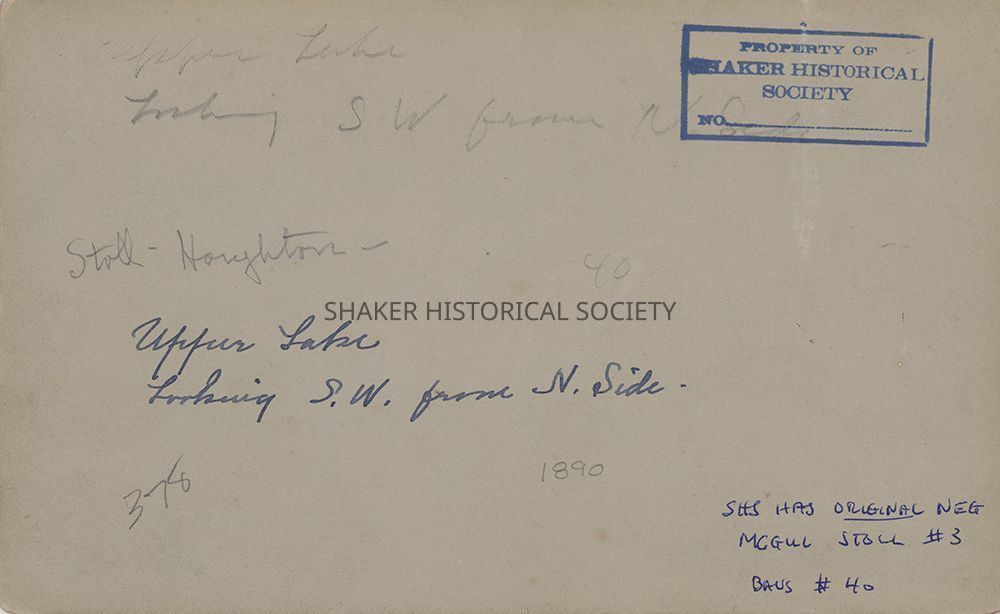 Upper Lake
Looking S W from N. Side
PROPERTY OF
SHAKER HISTORICAL
SOCIETY
NO.
Stoll - Houghton -
40
SHAKER HISTORICAL SOCIETY
Upper Lake
Looking S.W. from N. Side -
1890
SHS HAS ORIGINAL NEG
STOLL #3
# 40